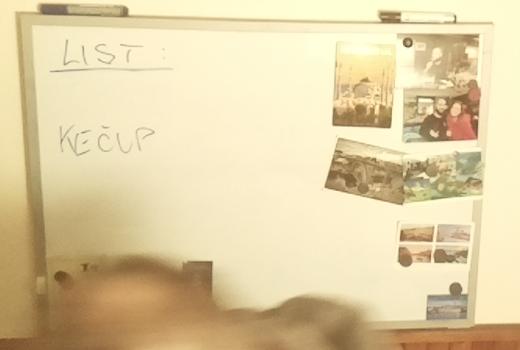 LIST :
KEČUP